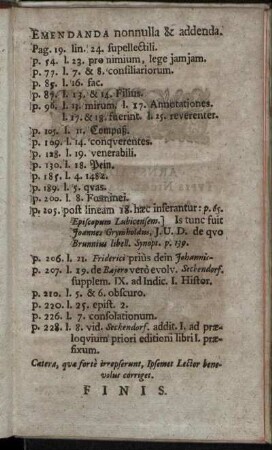 EMENDANDA nonnulla & addenda.
Pag. 19. lin. 24. supellectili.
p. 54. l. 23. pro nimium, lege jamjam.
p. 77. l. 7. & 8. consiliariorum.
p. 85. l. 26. fac.
p. 89. l. 13. & 14. Filius.
p. 96. l. 13. mirum. l. 17. Annotationes.
l. 17. & 18. fuerint. l. 15. reverenter.
p. 105. l. 11. Compaß.
p. 109. l. 14. conqverentes.
p. 128. l. 19. venerabili.
p. 130. l. 18. Pein.
p. 185. l. 4. 1482.
p. 189. l. 5. qvas.
p. 200. l. 8. Fominei.
p. 205. post lineam 18. hæc inserantur: p. 65.
Episcopum Lubicensem.] Is tunc fuit
Joannes Grymholdus, J. U. D. de qvo
Brunnius libell. Synops. p. 139.
p. 206. l. 21. Friderici prius dein Johannis-
p. 207. l. 19. de Bajero verò evolv. Seckendorf.
supplem. IX. ad Indic. I. Histor.
p. 210. l. 5. & 6. obscuro.
p. 220. l. 25. epist. 2.
p. 226. l. 7. consolationum.
p. 228. l. 8. vid. Seckendorf. addit. I. ad præ-
loqvium priori editioni libri I. præ-
fixum.
Cætera, quæ fortè irrepserunt, Ipsemet Lector bene-
volus corriget.
FINIS.